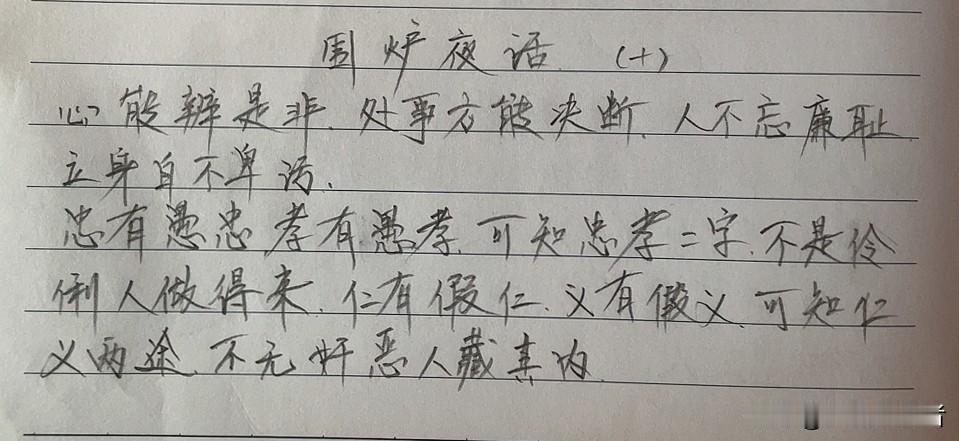 围炉夜话 (十)
心能辨是非、处事方能决断、人不忘廉耻
立身自不卑污、
忠有愚忠 孝有愚孝、可知忠孝二字、不是伶
俐人做得来、仁有假仁、义有假义、可知仁
义两途、不无奸恶人藏其内